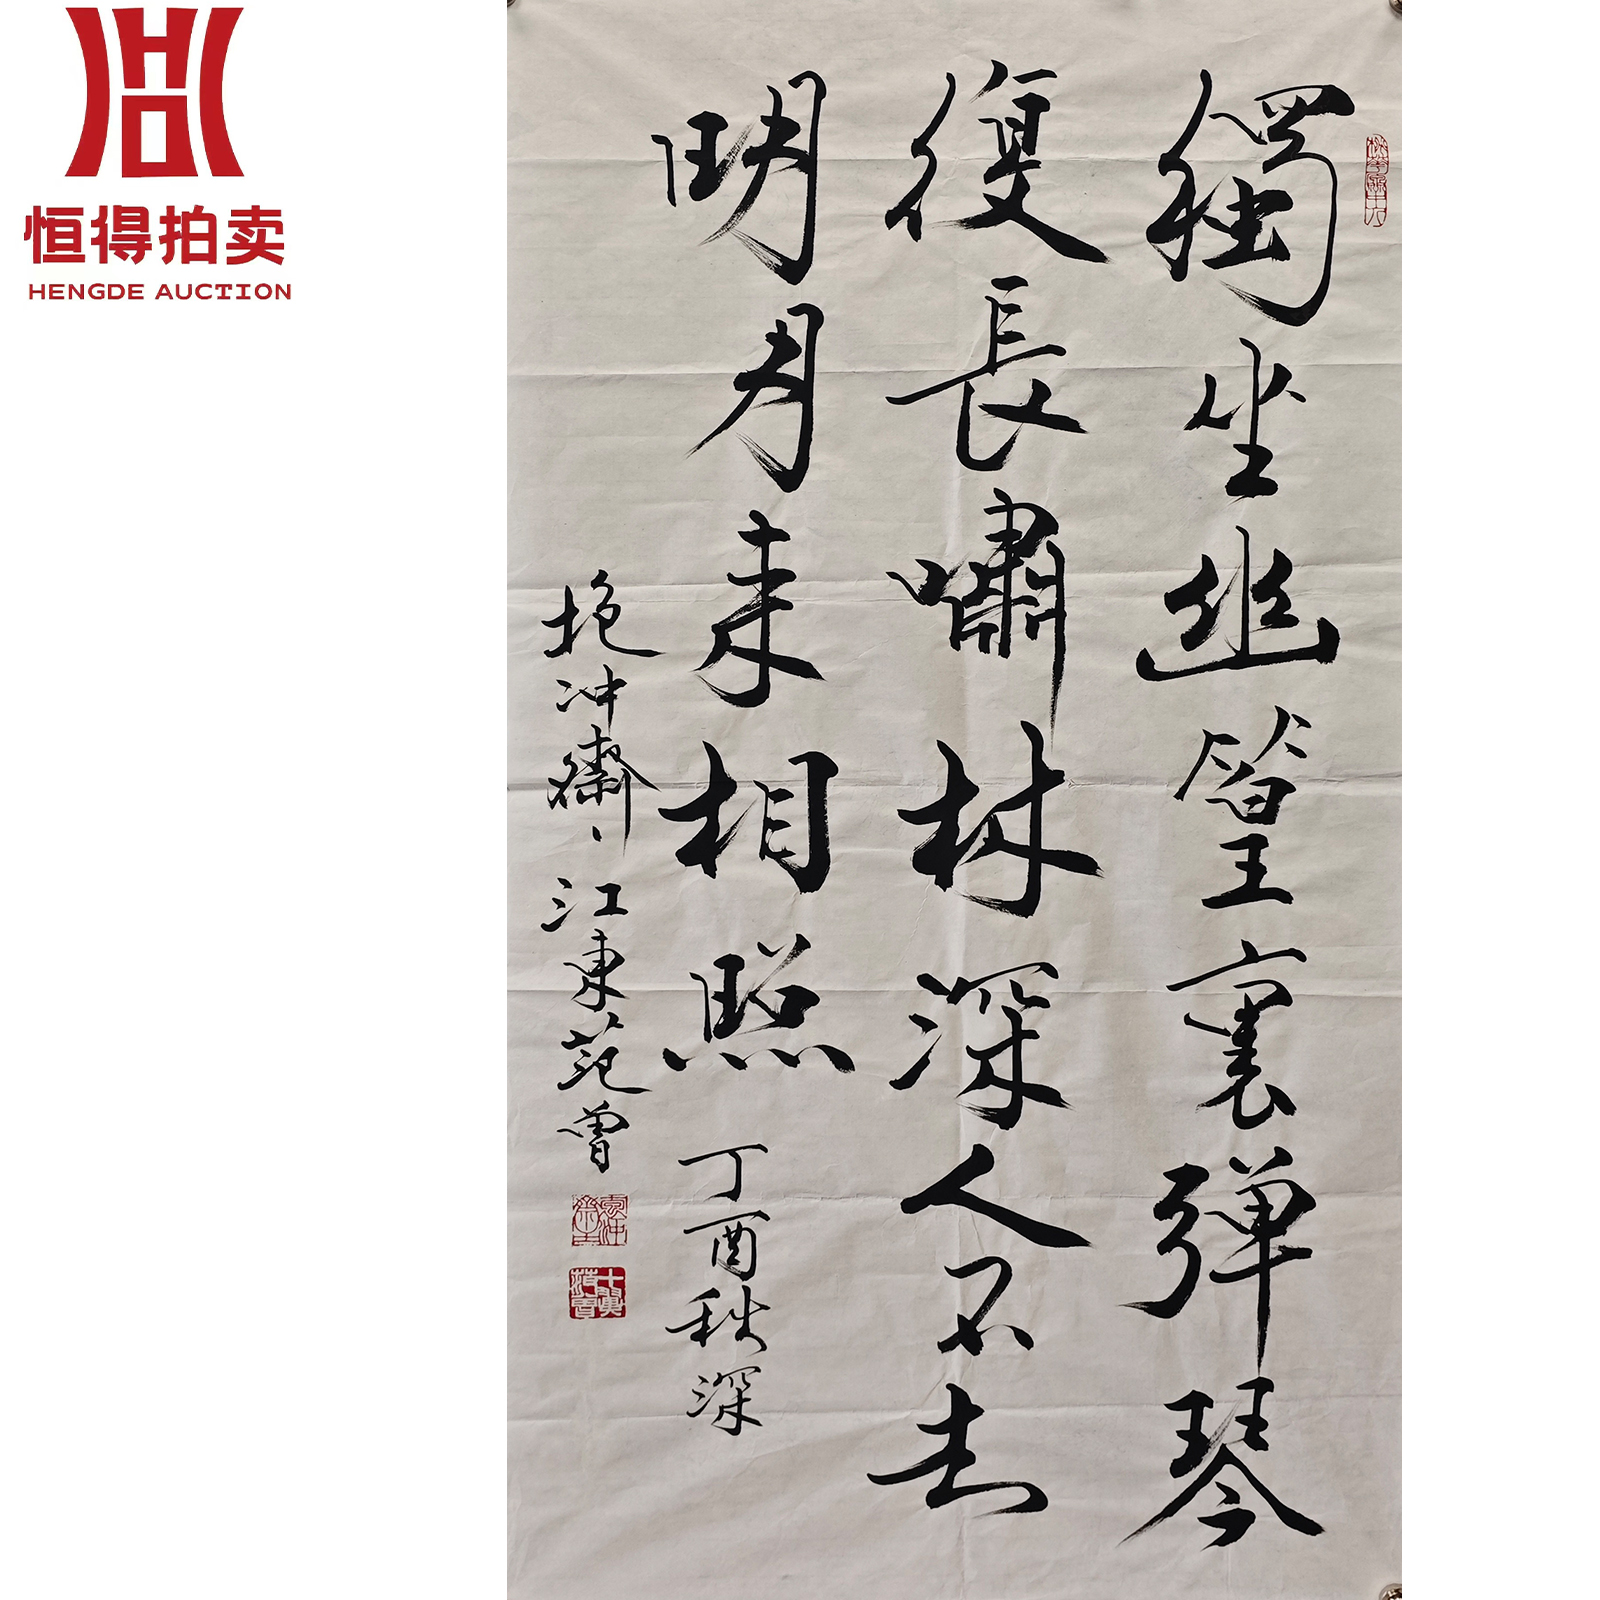 恒得拍卖
HENGDE AUCTION
獨坐幽篁裏弹琴
復長嘯林深人不去
明月来相照 丁酉秋深
抱冲齋、江東范曾
十翼范曾